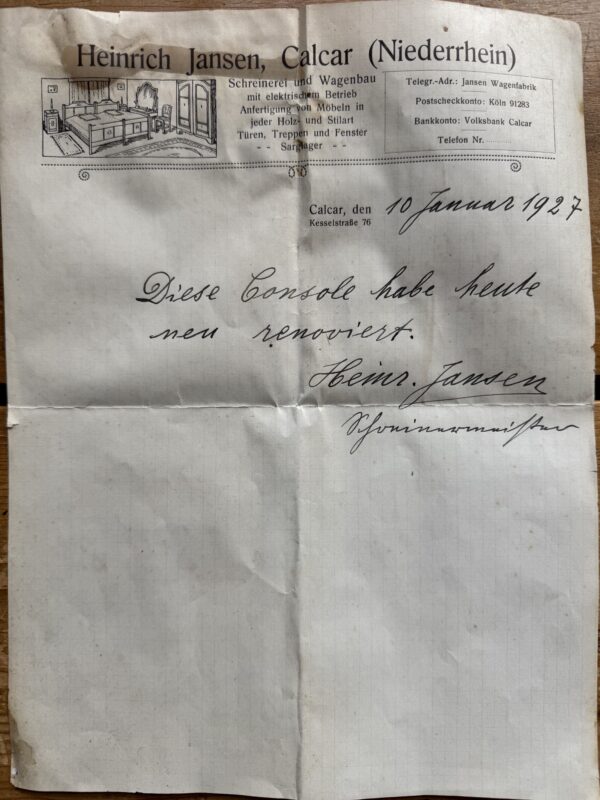 Heinrich Jansen, Calcar (Niederrhein)
Schreinerei und Wagenbau
mit elektrischem Betrieb
Anfertigung von Möbeln in
jeder Holz- und Stilart
Türen, Treppen und Fenster
- - Sarglager - -
Telegr.-Adr.: Jansen Wagenfabrik
Postscheckkonto: Köln 91283
Bankkonto: Volksbank Calcar
Telefon Nr. ..........
Calcar, den 10 Januar 1927
Kesselstraße 76
Diese Console habe heute
neu renoviert.
Heinr. Jansen
Schreinermeister